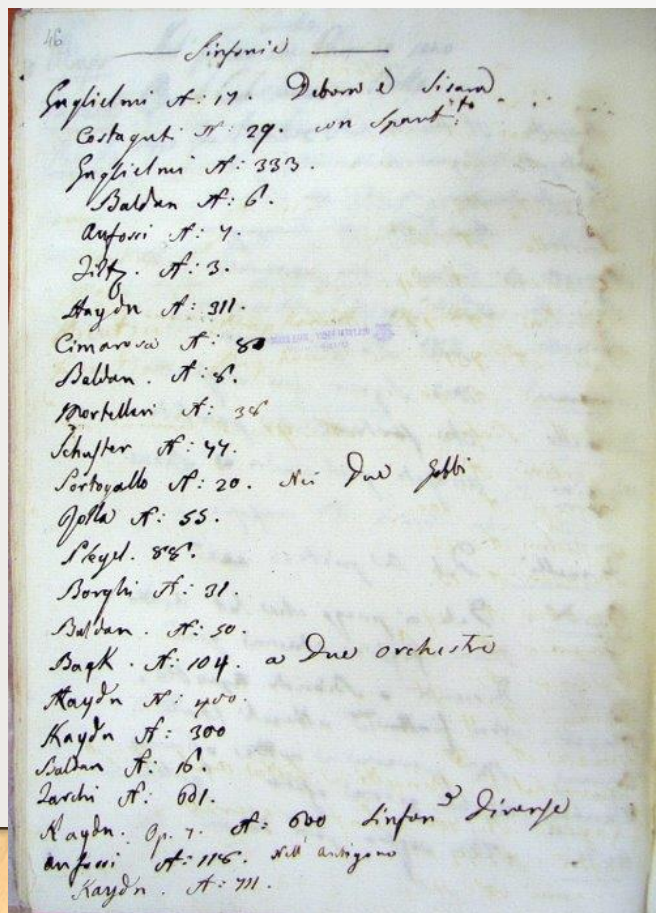 46
Sinfonie
Guglielmi N: 17. Debora e Sisara
Costaguti N: 29. con Spart:to
Guglielmi N: 333.
Baldan N: 6.
Anfossi N: 7.
N: 3.
Haydn N: 311.
Cimarosa N:
Baldan. N: 8.
Mortellari N: 38
Schuster N: 77.
Portogallo N: 20. Nei Due Gobbi
N: 55.
Pleyel. 88.
Borghi N: 31.
Baldan. N: 50.
Back. N: 104. a Due orchestre
Haydn N:
Haydn N: 300
Baldan N: 16.
Zarchi N: 601.
Haydn. Op. 7. N: 600 Sinfon Diverse
Anfossi N: 118. Nell' Antigono
Haydn. N: 711.